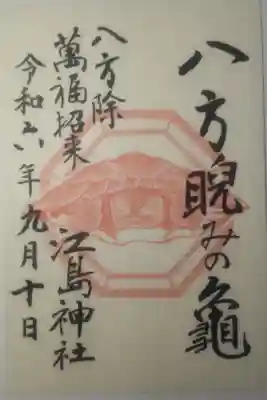 八方睨みの亀
八方除
萬福招来
江島神社
令和六年九月十日